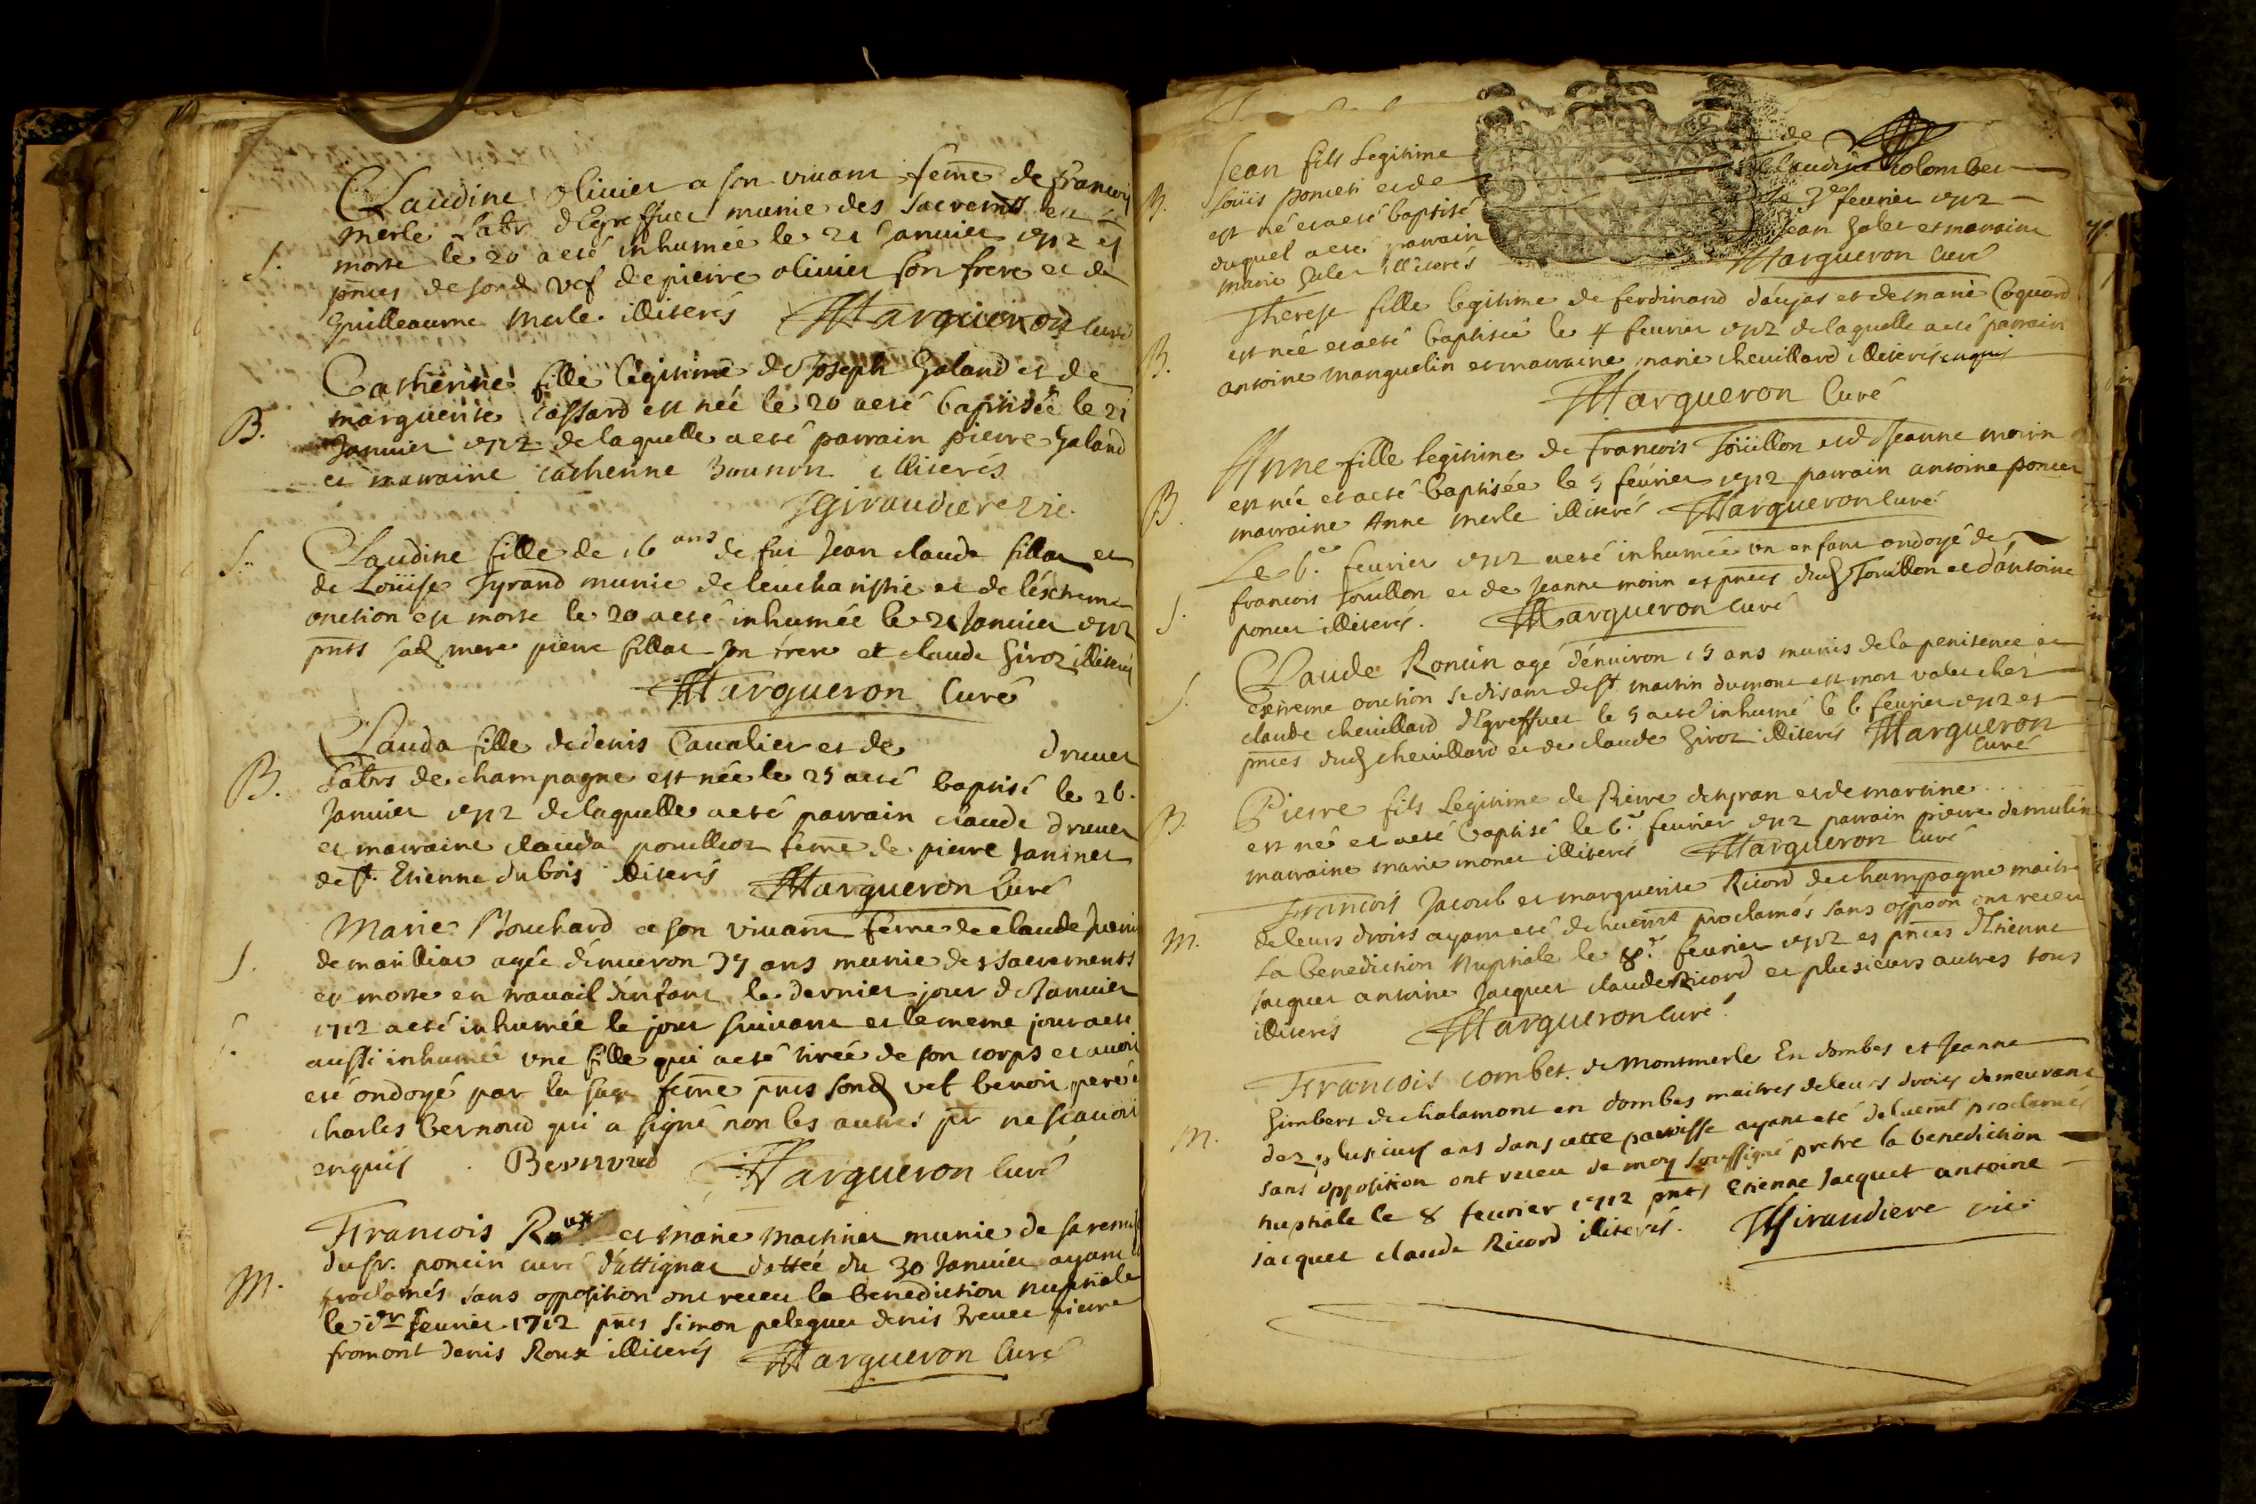 Claudine olivier a son vivant femme de francois
merle labr d'Egreffuer munie des sacremts est
S.
morte le 20 a eté inhumée le 21 Janvier 1712 es
pnces de sond vef de pierre olivier son frere et de
Guilleaume merle illiterés Margueron Curé
Catherine fille legitime de Joseph Galand et de
marguerite cassard est née le 20 a eté baptisée le 21
B.
Janvier 1712 de laquelle a eté parrain pierre Galand
et marraine catherine illiterés
Giraudiere vic.
S.
Claudine fille de 16 ans de fut Jean claude fillat et
de Loüise Tyrand munie de leucharistie et de l'extreme
onction est morte le 20 a eté inhumée le 21 Janvier 1712
pnts sad mere pierre fillat son frere et claude Giroz illiterés
Margueron Curé
Clauda fille de denis Cavalier et de druuet
B.
labrs de champagne est née le 25 a eté baptisé le 26
Janvier 1712 de laquelle a eté parrain claude druuet
et marraine clauda pouilloz femme de pierre Janinet
de st Etienne du bois illiterés Margueron Curé
Marie Bouchard a son vivant femme de claude
S.
de marilliat agée d'environ 35 ans munie des sacrements
est morte en travail denfant le dernier jour de Janvier
1712 a eté inhumée le jour suivant et le meme jour a eté
S.
aussi inhumée une fille qui a eté tirée de son corps et avoit
eté ondoyé par la sage femme pnts sond vef benoit
charles bernoud qui a signé non les autres pr ne scavoir
enquis Bernoud Margueron Curé
Francois Roux et marie martinet munie de sa remise
du sr. poncin curé d'attignat dattée du 30 Janvier ayant
M.
proclamés sans opposition ont receu la benediction nuptiale
le 1er fevrier 1712 pnts simon peleguet denis druet pierre
fromont denis Roux illiterés Margueron Curé
Jean fils Legitime de
B.
Loüis poncet et de Claudine Colombet
est né et a eté baptisé le 3e fevrier 1712
duquel a eté parrain Jean Galet et marraine
marie Galet illiterés Margueron Curé
Therese fille legitime de ferdinand daujas et de marie Coquard
B.
est née et a eté baptisée le 4 fevrier 1712 de laquelle a eté parrain
antoine manguelin et marraine marie chevillard illiterés enquis
Margueron Curé
Anne fille legitime de francois Toüillon et de Jeanne morin
B.
est née et a eté baptisée le 5 février 1712 parrain antoine poncet
marraine Anne merle illiterés Margueron Curé
Le 6e fevrier 1712 a eté inhumée un enfant ondoyé de
S.
francois Touillon et de Jeanne morin es pnces dud Touillon et d'antoine
poncet illiterés. Margueron Curé
Claude Roncin agé d'environ 15 ans munis de la penitence et
S.
extreme onction se disant de st martin du mont est mort valet chez
claude chevillard d'Egreffuer le 5 a eté inhumé le 6 fevrier 1712 es
pnces dud chevillard et de claude Giroz illiterés Margueron
Curé
B.
Pierre fils Legitime de Pierre detyran et de martine
est né et a eté baptisé le 6e fevrier 1712 parrain pierre demulin
marraine marie monet illiterés Margueron Curé
Francois Jacoub et marguerite Ricord de champagne maitre
M.
de leurs droits ayant eté dehuemt proclamés sans oppoon ont receu
la benediction Nuptiale le 8e fevrier 1712 es pnces d'Etienne
Jacquet antoine Jacquet claude Ricord et plusieurs autres tous
illiterés Margueron Curé
Francois combet de Montmerle En dombes et Jeanne
Gimbert de chalamont en dombes maitres de leurs droits demeurant
M.
dez plusieurs ans dans cette parroisse ayant eté deluemt proclamés
sans opposition ont receu de moy soussigné pretre la benediction
nuptiale le 8 fevrier 1712 pnts Etienne Jacquet antoine
jacquet claude Ricord illiterés. Giraudiere vic